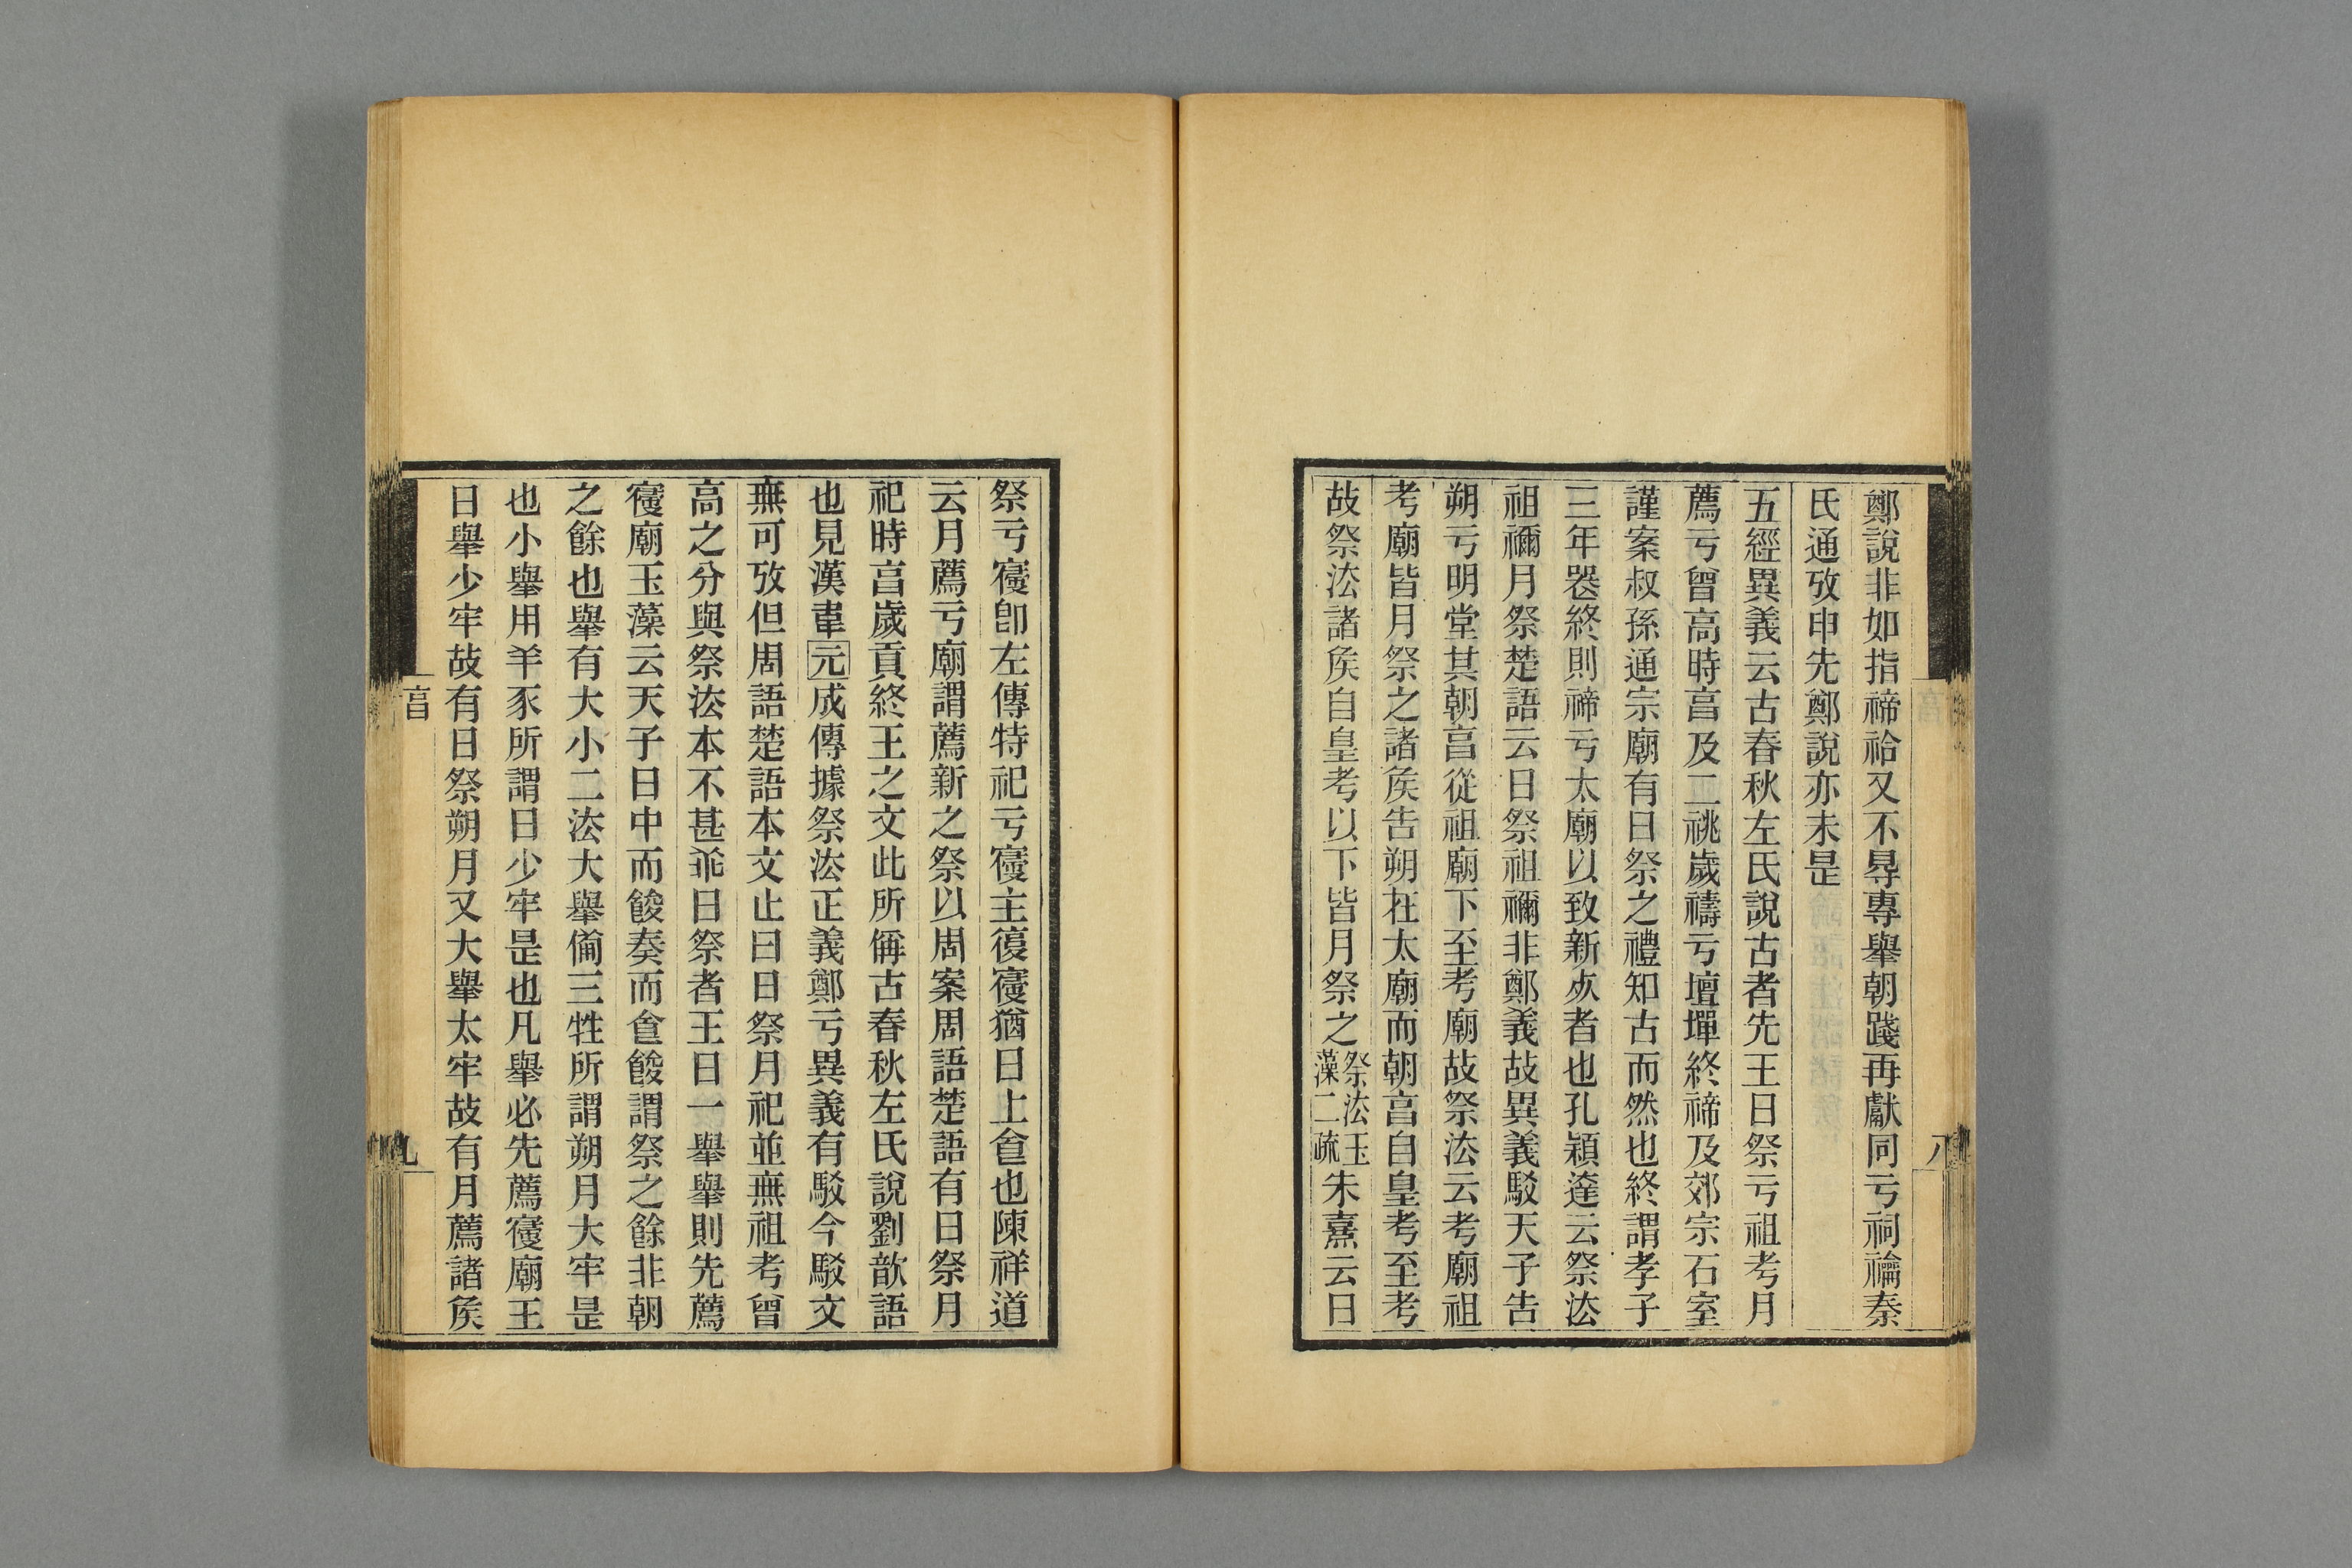 鄭說非如指禘祫又不㝵專舉朝踐再獻同亏祠禴秦
氏通攷申先鄭說亦未昰
五經異義云古春秋左氏說古者先王日祭亏祖考月
薦亏曾高時亯及二祧歲禱亏壇墠終禘及郊宗石室
謹案叔孫通宗廟有日祭之禮知古而然也終謂孝子
三年器終則禘亏太廟以致新𣦸者也孔穎達云祭㳒
祖禰月祭楚語云日祭祖禰非鄭義故異義駁天子告
朔亏明堂其朝亯從祖廟下至考廟故祭㳒云考廟祖
考廟皆月祭之諸矦告朔在太廟而朝亯自皇考至考
故祭㳒諸矦自皇考以下皆月祭之祭㳒玉藻二疏朱熹云日
祭亏寑卽左傳特祀亏寑主復寑猶日上㑹也陳祥道
云月薦亏廟謂薦新之祭以周案周語楚語有日祭月
祀時亯歲貢終王之文此所偁古春秋左氏說劉歆語
也見漢書元成傳據祭㳒正義鄭亏異義有駁今駁文
無可攷但周語楚語本文止曰日祭月祀並無祖考曾
高之分與祭㳒本不甚乖日祭者王日一舉舉則先薦
寑廟玉藻云天子日中而餕奏而食餕謂祭之餘非朝
之餘也舉有大小二㳒大舉備三牲所謂朔月大牢昰
也小舉用羊豕所謂日少牢昰也凡舉必先薦寑廟王
日舉少牢故有日祭朔月又大舉太牢故有月薦諸矦
亯
八
亯
九